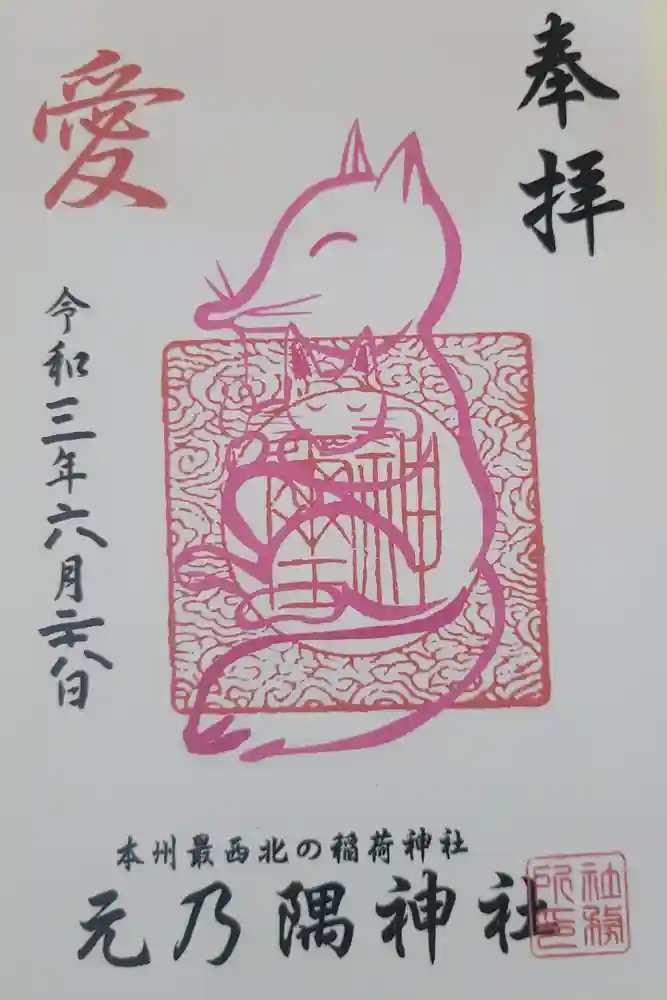 奉拝
愛
令和三年六月二十八日
本州最西北の稲荷神社
元乃隅神社
社務所印